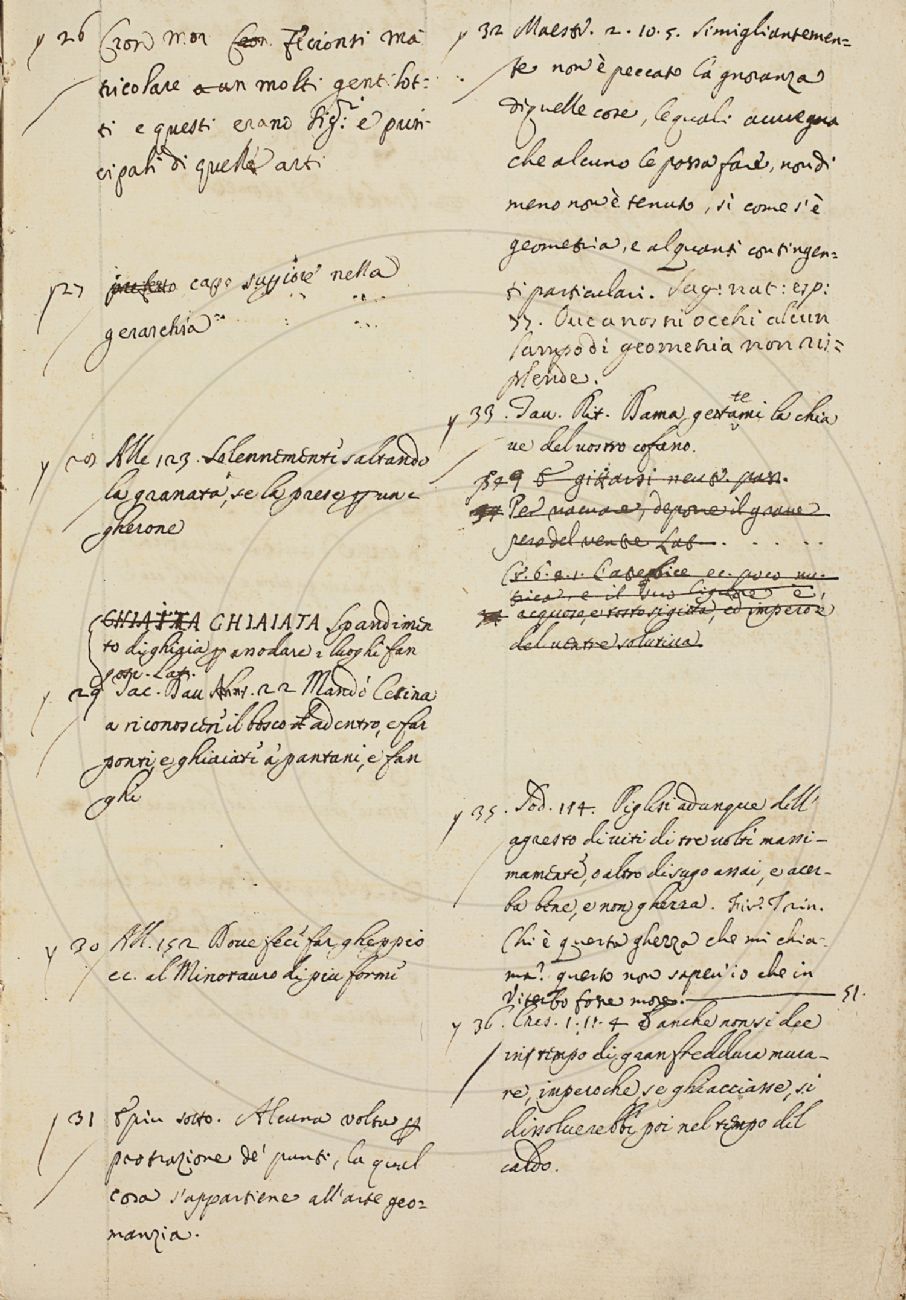 26 Cron. Mor. Cron. Fecionsi ma
tricolare a un molti gentilot-
ti e questi erano Sig.ri e prin
cipali di quelle arti
27 capo superiore nella
gerarchia
28 Alle. 123. Solennemente saltando
la granata, se la prese per un
gherone
CHIAITA CHIAIATA Spandimen
to di ghiaia per assodare i luoghi fan
gosi. Lat.
29 Tac. Dav. Ann. 22 Mandò Cecina
a riconoscere il bosco adentro, e far
ponti, e ghiaiate a' pantani, e fan
ghi
30 All. 152 Dove fece far gheppio
ec. al Minotauro di più forme
31 E più sotto. Alcuna volta per
protrazione de' punti, la qual
cosa s'appartiene all'arte geo=
manzia.
32 Maestr. 2. 10. 5. Simigliantemen=
te non è peccato la gnoranza
di quelle cose, le quali avvegna
che alcuno le possa fare, nondi
meno non è tenuto, sì come s'è
geometria, e alquanti contingen=
ti particulari. Sag: nat: esp:
Ove a nostri occhi alcun
lampo di geometria non ri=
splende.
33. Fav. Rit. Dama, gestatemi la chia
ve del vostro cofano.
Per vacuare, depone il grave
peso del ventre Lat.
Cr. 6. e. 1. L'atrebice ec. poco nu-
trica, e il suo ligame è,
acquoso, e tosto rigida, ed imperò è
del ventre solutiva
35. Sod. 114. Piglisi adunque dell'
agresto di viti di tre volte massi-
mamente, o altro di sugo assai, e acer-
ba bene, e non ghezza. Fir. Trin.
Chi è questa ghezza che mi chia-
ma? questo non saper'io che in
Viterbo fosse more. 51.
36. Cres. 1. 11. 4 E anche non si dee
in tempo di gran freddura mura-
re, imperoche, se ghiacciasse, si
dissolverebbe poi nel tempo del
caldo.